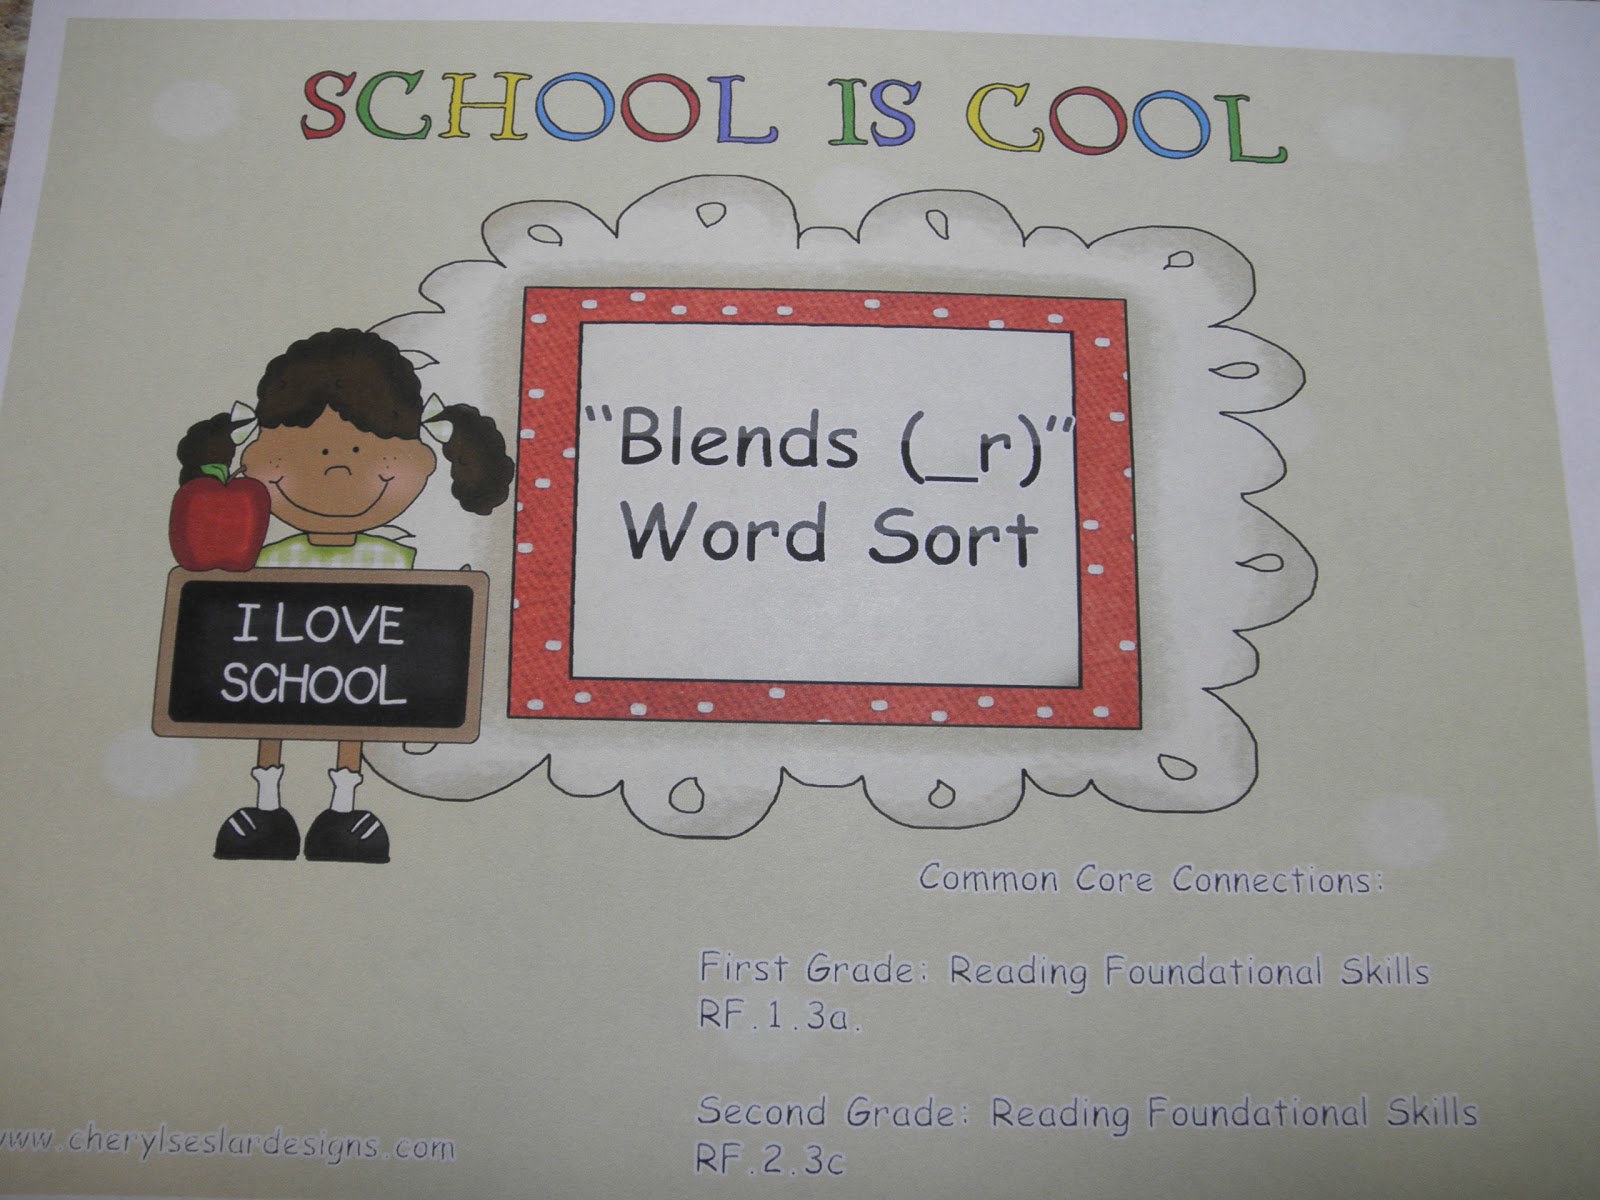 SCHOOL IS COOL
"Blends (_r)"
Word Sort
I LOVE
SCHOOL
Common Core Connections:
First Grade: Reading Foundational Skills
RF.1.3a.
Second Grade: Reading Foundational Skills
RF.2.3c
www.cherylseslardesigns.com